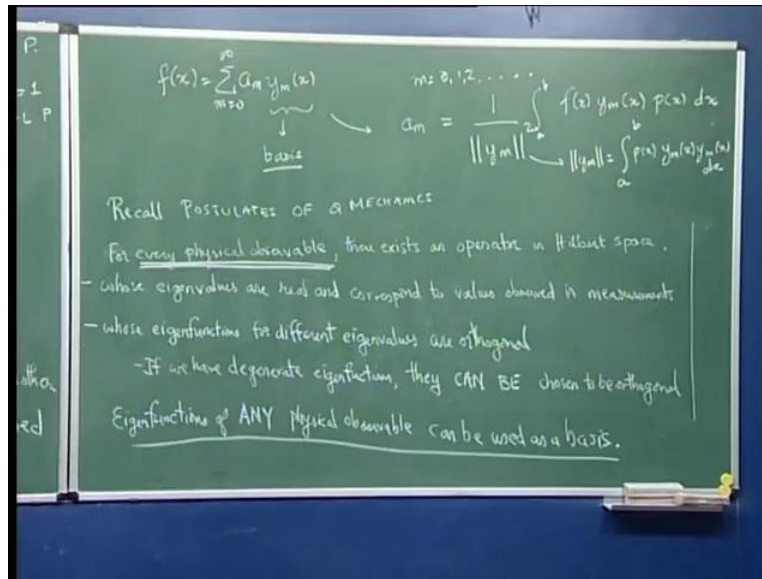 P.
= 1
-L P
otho
ed
f(x) = ∑_{m=0}^{∞} a_m y_m(x)
basis
m = 0, 1, 2, . . . . .
a_m = 1/||y_m||² ∫_a^b f(x) y_m(x) p(x) dx
||y_m|| = ∫_a^b p(x) y_m(x) y_m(x) dx
Recall POSTULATES OF Q MECHANICS
For every physical observable, there exists an operator in Hilbert space.
- whose eigenvalues are real and correspond to values observed in measurements
- whose eigenfunctions for different eigenvalues are orthogonal
- If we have degenerate eigenfuctions, they CAN BE chosen to be orthogonal
Eigenfunctions of ANY physical observable can be used as a basis.